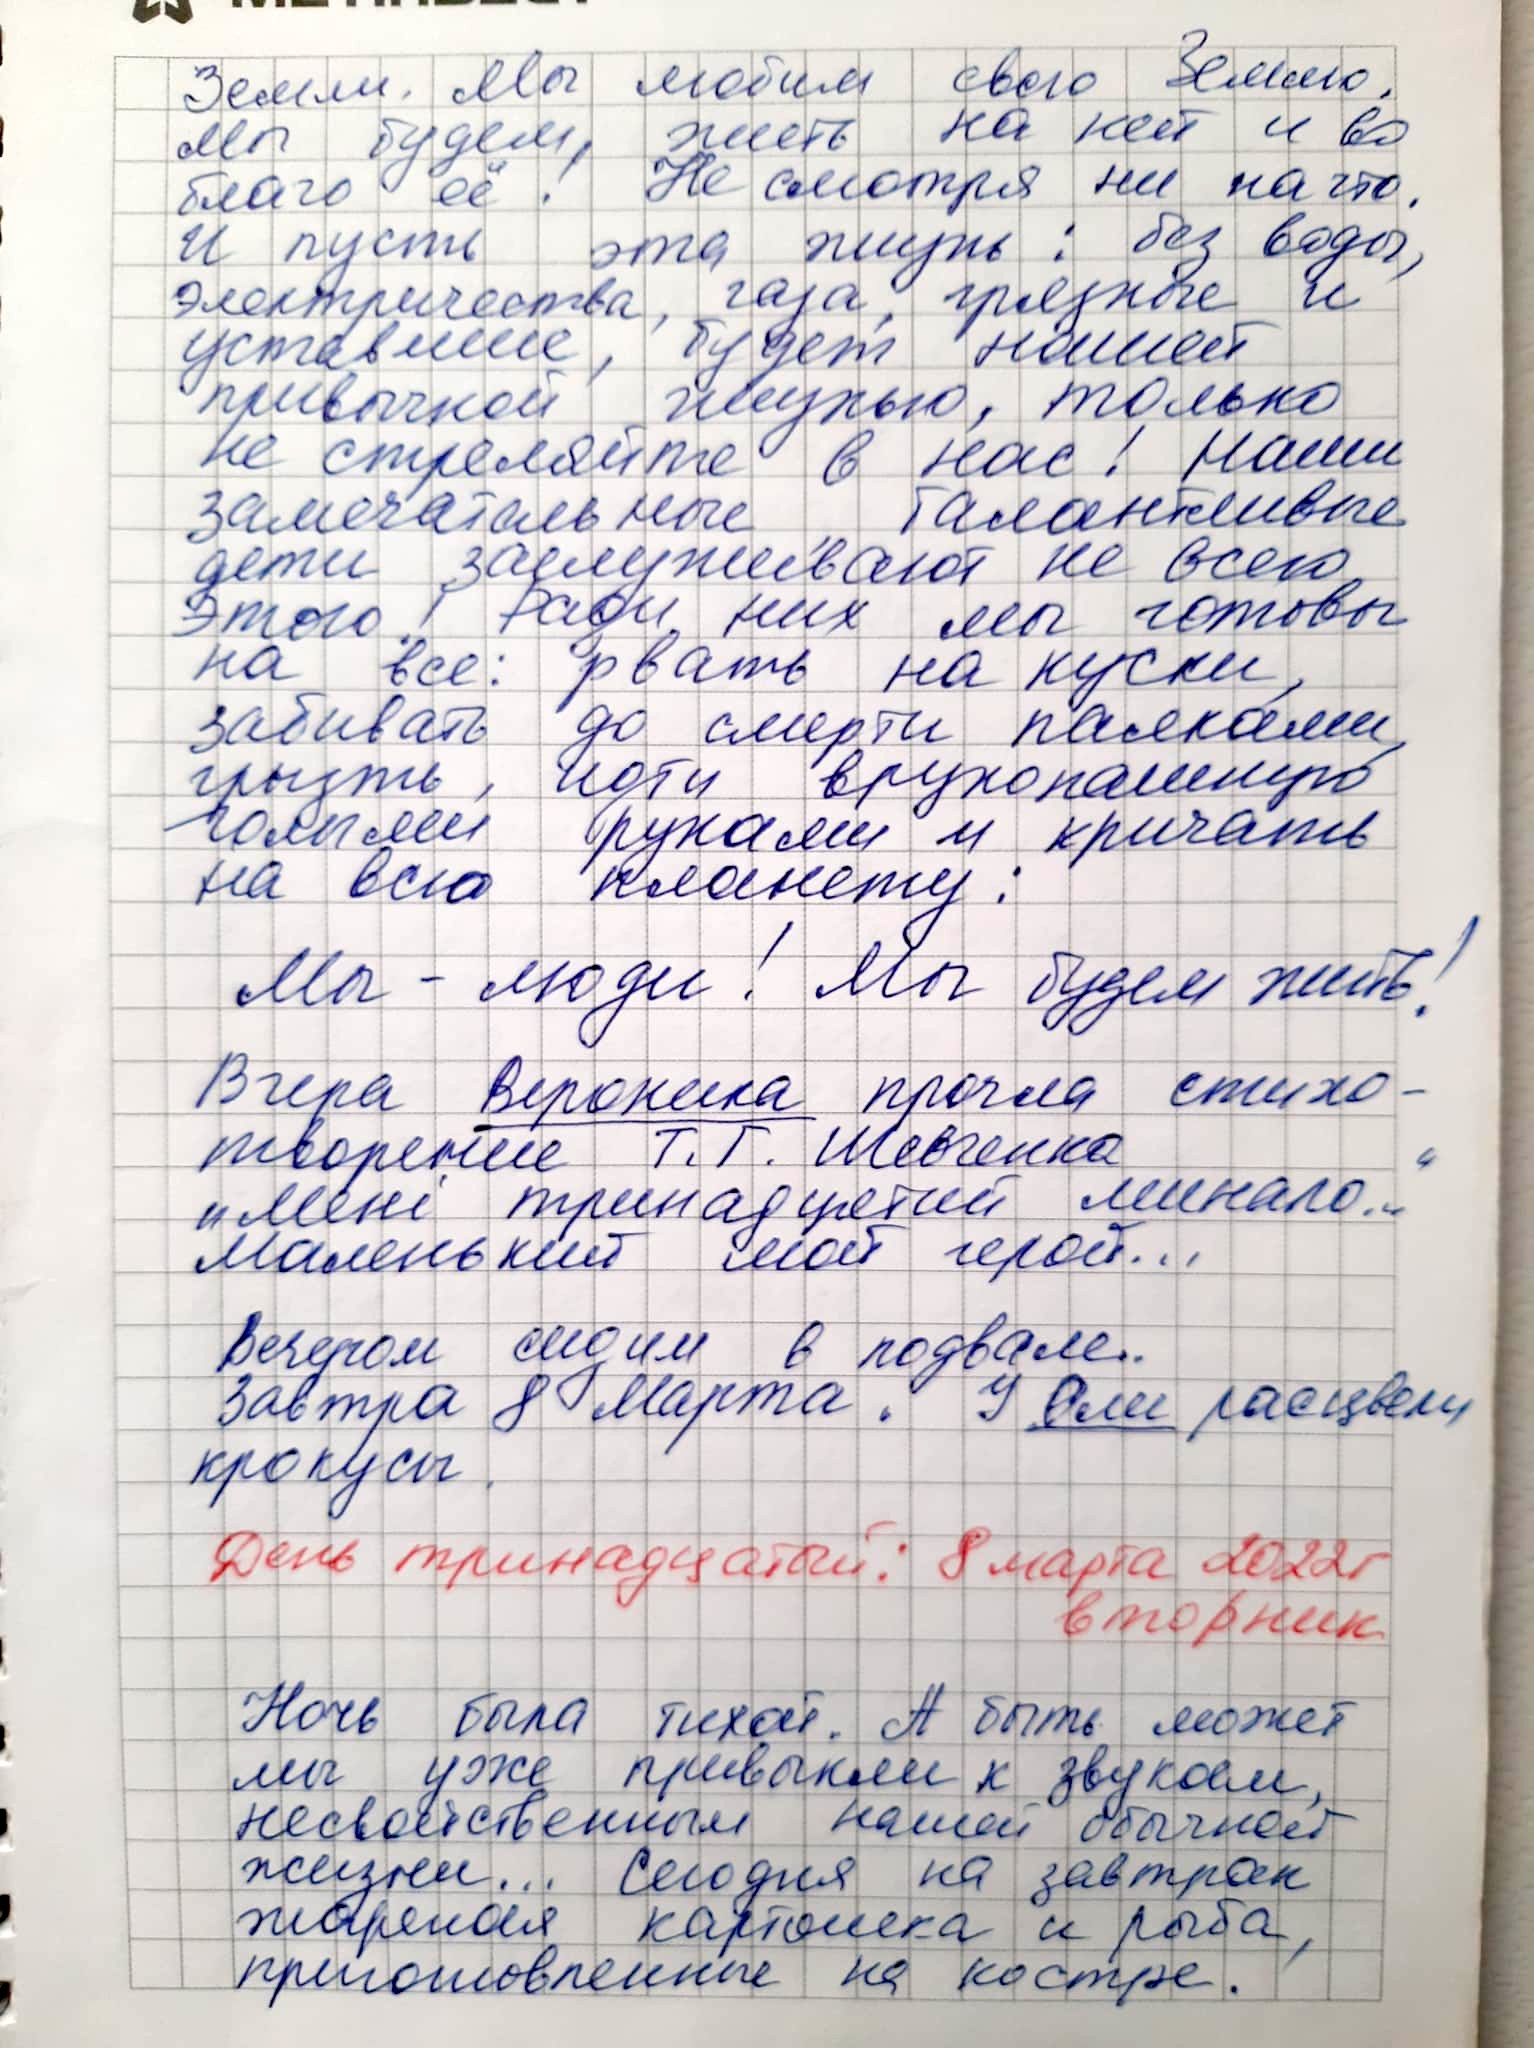 МЕТІНВЕСТ
Земли. Мы любим свою Землю.
Мы будем, жить на ней и во
благо её! Не смотря ни на что.
И пусть эта жизнь: без воды,
электричества, газа, грязные и
уставшие, будет нашей
привычной жизнью, только
не стреляйте в нас! Наши
замечательные, талантливые
дети заслуживают не всего
этого! Ради них мы готовы
на все: рвать на куски,
забивать до смерти палками,
грызть, идти врукопашную
голыми руками и кричать
на всю планету:
Мы - люди! Мы будем жить!
Вчера Вероника прочла стихо-
творение Т.Г. Шевченка
"Мені тринадцятий минало..."
Маленький мой герой...
Вечером сидим в подвале..
Завтра 8 Марта. У Оли расцвели
крокусы.
День тринадцатый: 8 марта 2022г
вторник
Ночь была тихой. А быть может
мы уже привыкли к звукам,
несвойственным нашей обычной
жизни... Сегодня на завтрак
жареная картошка и рыба,
приготовленные на костре.